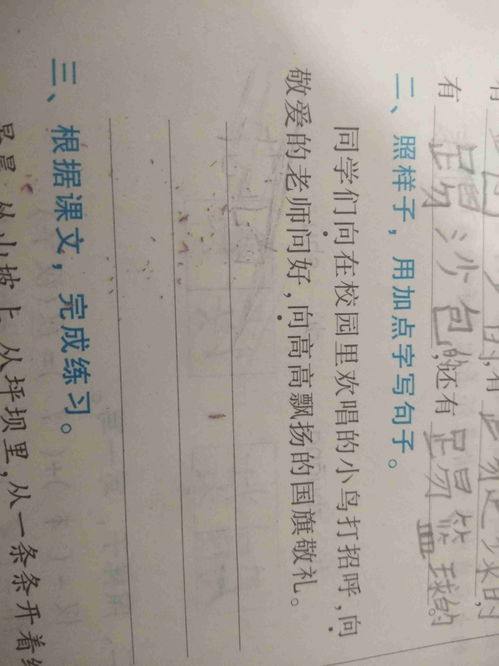 有踢沙包的,还有踢篮球的。
二、照样子，用加点字写句子。
同学们向在校园里欢唱的小鸟打招呼,向
敬爱的老师问好,向高高飘扬的国旗敬礼。
三、根据课文，完成练习。
从山坡上,从坪坝里,从一条条开着